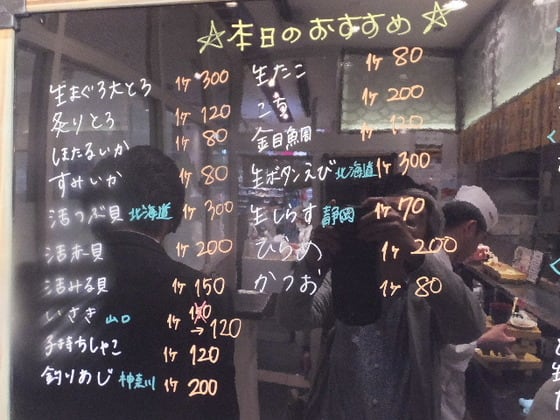 ☆本日のおすすめ☆
生まぐろ大とろ 1ヶ 300
炙りとろ 1ヶ 120
ほたるいか 1ヶ 80
すみいか 1ヶ 80
活つぶ貝 北海道 1ヶ 300
活赤貝 1ヶ 200
活みる貝 1ヶ 150
いさき 山口 1ヶ 150 →120
子持ちしゃこ 1ヶ 120
釣りあじ 神奈川 1ヶ 200
生たこ 1ヶ 80
こ重 1ヶ 200
金目鯛 1ヶ 120
生ボタンえび 北海道 1ヶ 300
生しらす 静岡 1ヶ 70
ひらめ 1ヶ 200
かつお 1ヶ 80